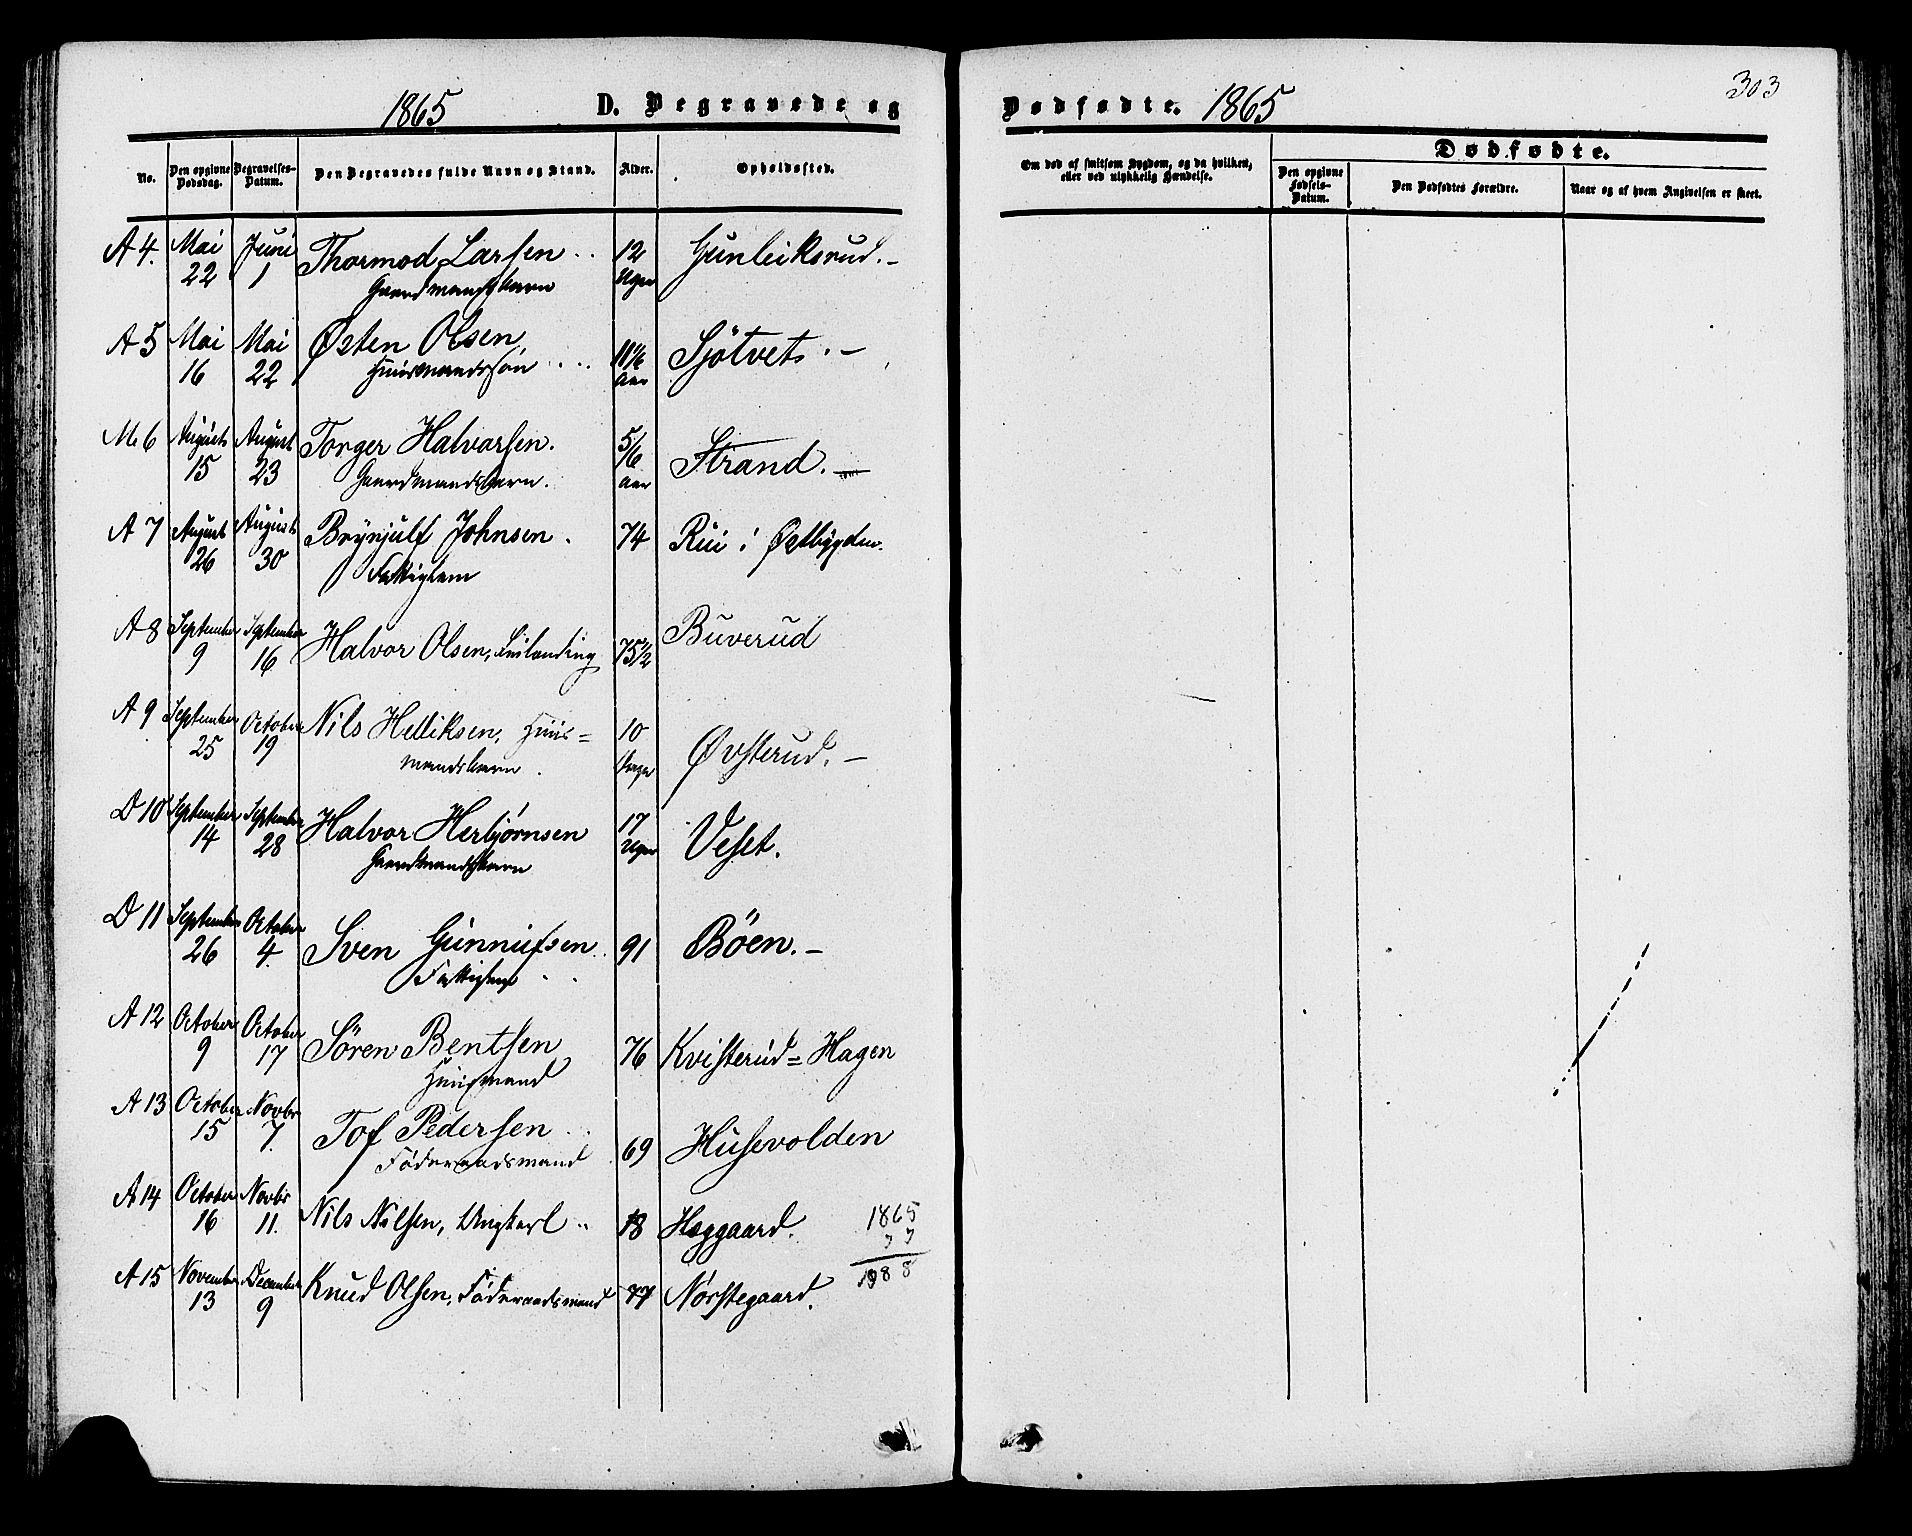 1865 D. Begravede og
No. Den opgivne Dødsdag. Begravelses-Datum. Den Begravedes fulde Navn og Stand. Alder. Opholdssted.
A 4. Mai 22 Juni 1 Thormod Larsen Gaardmandsbarn 12 Uger Gunleiksrud. –
A 5 Mai 16 Mai 22 Østen Olsen Huusmandssøn 11 1/6 Aar Sjötvet. –
M. 6 August 15 August 23 Torger Halvorsen. Gaardmandsbarn. 5/6 Aar Strand. –
A 7 August 26 August 30 Brynjulf Johnsen. Fattiglem 74 Rui i Østbygden.
A 8 September 9 September 16 Halvor Olsen, 75 1/2 Buverud
A 9 September 25 October 19 Nils Helliksen, Huus=
mandsbarn. 10 Dage Øvsterud. –
D 10 September 14 September 28 Halvor Herbjørnsen Gaardmandsbarn 17 Uger Veset.
D 11 September 26 October 4. Sven Gunnulfsen Fattiglem 91 Böen. –
A 12 October 9 October 17 Sören Bentsen Huusmand 76 Kvisterud = Hagen
A 13 October 15 Novbr 7. Tof Pedersen Föderaadsmand 69 Husevolden
A 14 October 16 Novbr 11. Nils Nilsen, Ungkarl 18 Hæggaard.
A 15 November 13 December 9 Knud Olsen, Föderaadsmand 77 Nørstegaard.
1865
77
1788
303
Dødfødte. 1865
Om død af smitsom Sygdom, og da hvilken, eller ved ulykkelig Hændelse.
Dødfødte.
Den opgivne Fødsels-Datum. Den Dødfødtes Forældre. Naar og af hvem Angivelsen er skeet.